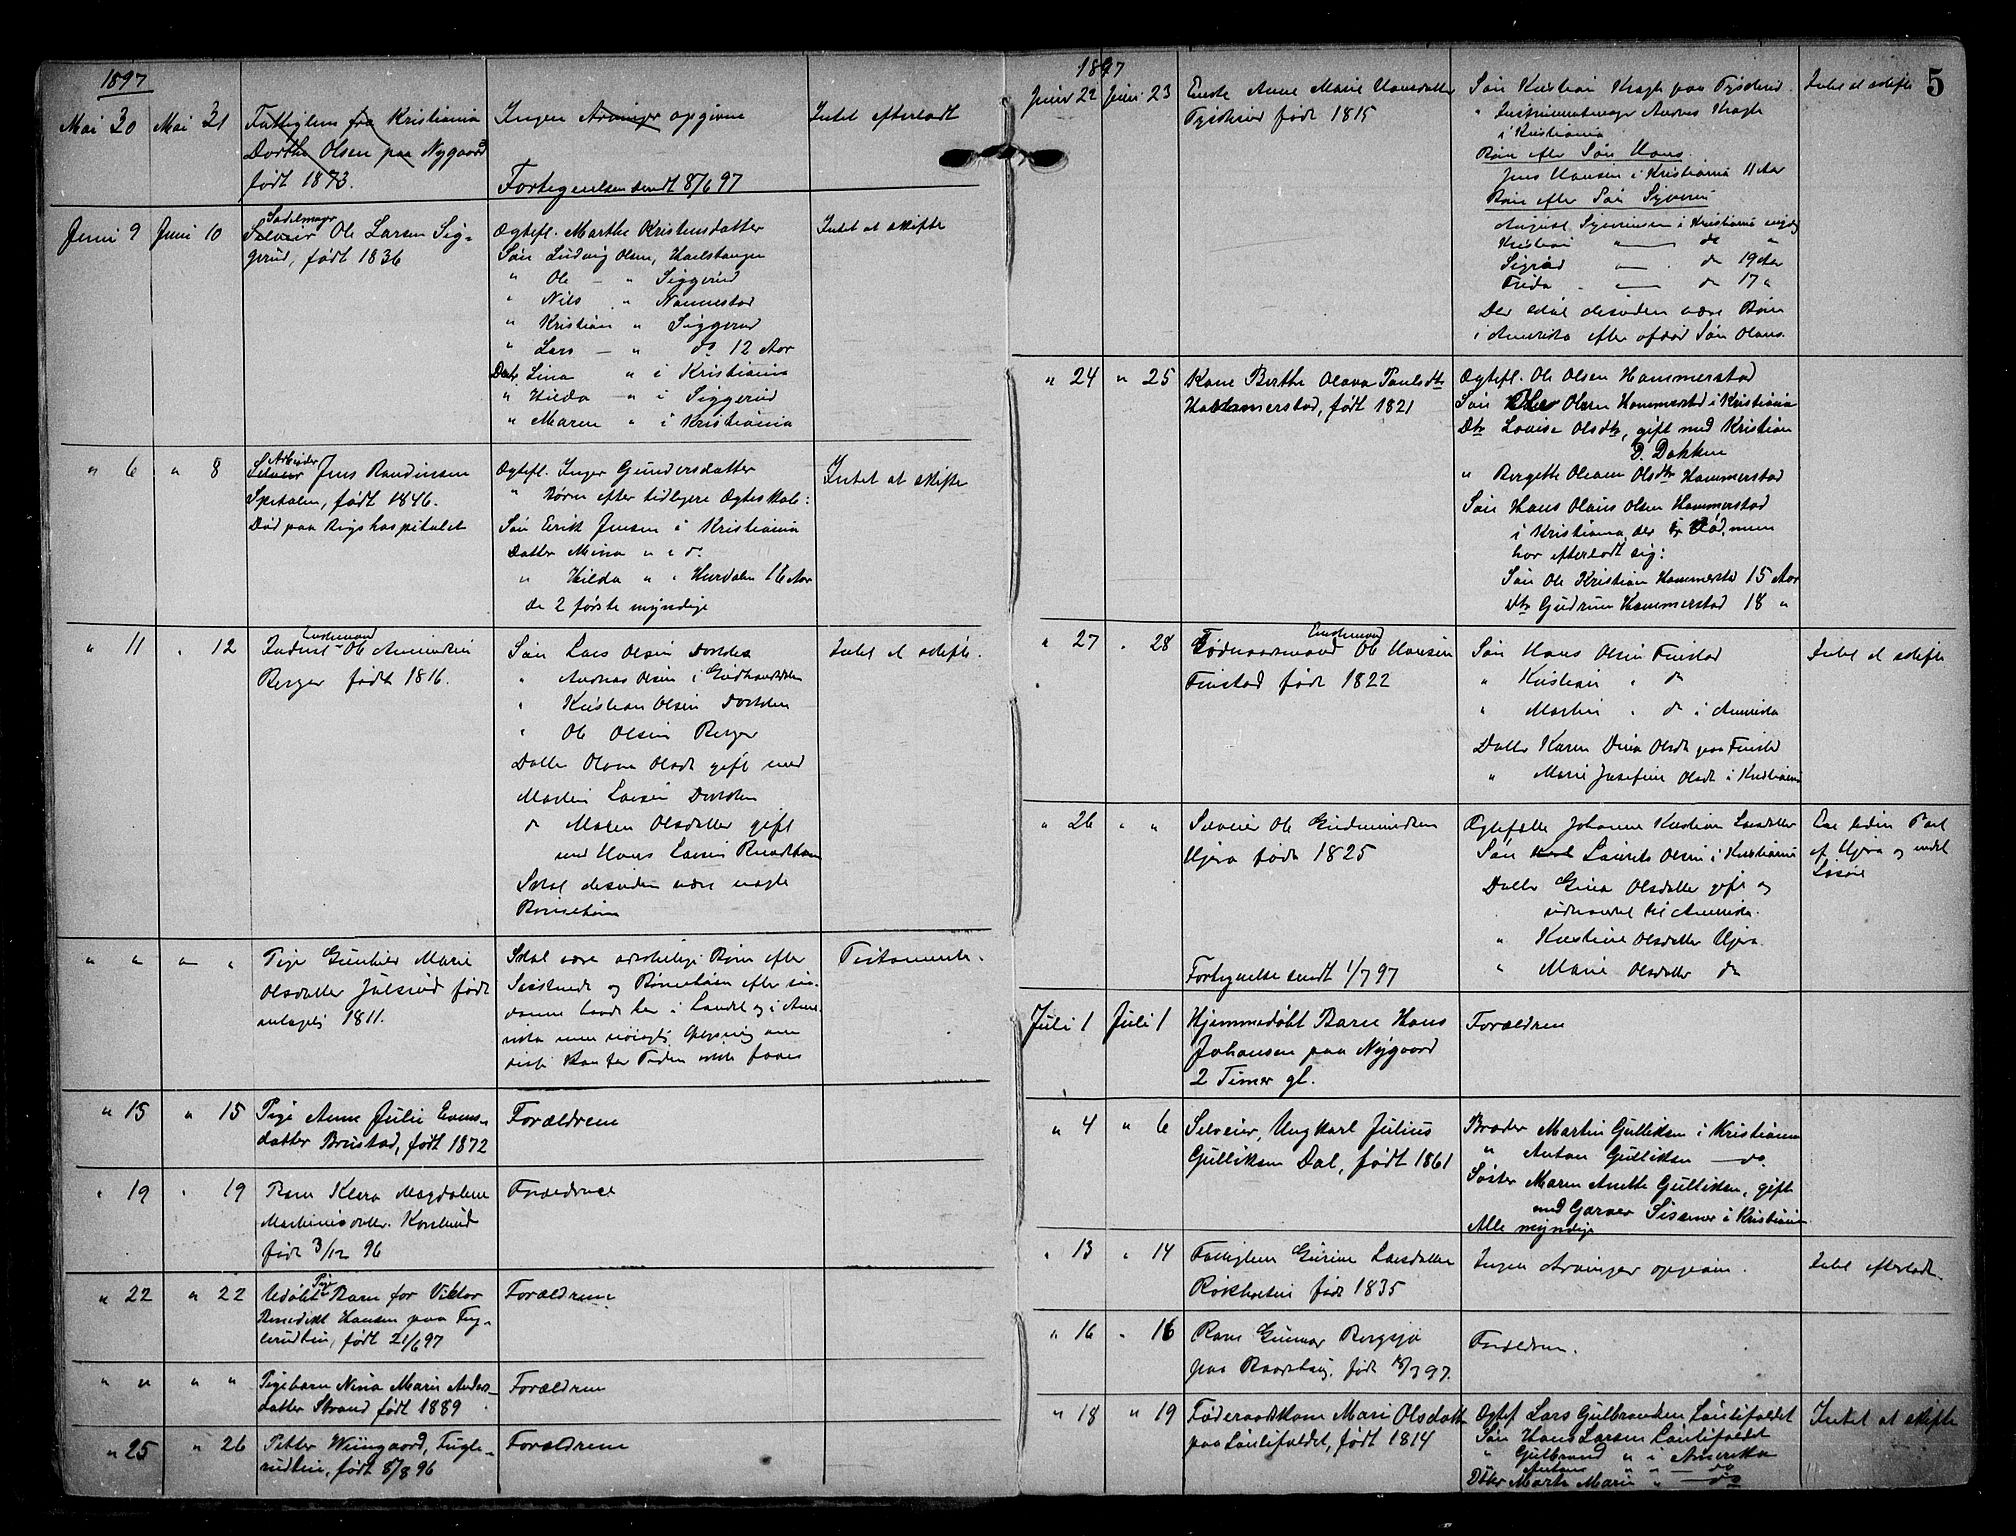 1897
Mai 30 Mai 31 Fattiglem fra Kristiania Ingen Arvinger opgivne Intet efterladt
Dorthe Olsen paa Nygaard
født 1873. Fortegnelsen sendt 8/6 97
Juni 9 Juni 10 Sadelmager
Selveir Ole Larsen Sig- Ægtefl. Marthe Kristensdatter Intet at skifte
gerud, født 1836 Søn Ludvig Olsen, Harlstangen
" Ole — " Siggerud
" Nils " Nannestad
" Kristian " Siggerud
" Lars — " do 12 Aar
Datr Lina " i Kristiania
" Hilda — " i Siggerud
" Maren " i Kristiania
" 6 " 8 Arbeider
Selveier Jens Randinsen Ægtefl. Inger Gundersdatter Intet at skifte
Spitalen, født 1846. " Børn efter tidligere Ægteskab:
Død paa Rigshospitalet Søn Erik Jensen i Kristiania
Datter Mina " i do.
" Hilda " i Hurdalen 16 Aar
de 2 første myndige
" 11 " 12 Enkemand
Inderst Ole Amundsen Søn Lars Olsen Intet at skifte.
Berger født 1816. " Andreas Olsen i
" Kristian Olsen
" Ole Olsen Berger
Datter Olava Olsdt gift med
Martin Larsen
do Maren Olsdatter gift
med Hans Larsen
Skal desuden være nogle
Børnebørn
" " " " Pige Gunhild Marie Skal være adskillige Børn efter Testamente.
Olsdatter Julsrud født Søskende og Børnebørn efter saa-
antagelig 1811. danne baade her i Landet og i Ame-
rika men nøiagtig Oplysning om
disse kan for Tiden ikke faaes
" 15 " 15 Pige Anne Julie Evens- Forældrene
datter Brustad, født 1872
" 19 " 19 Barn Klara Magdalene Forældrene
Martinisdatter
født 3/12 96
" 22 " 22 Udøbt Pige Barn for Viktor Forældrene
Benedikt Hansen paa Fug-
lerudbin, født 21/6 97
" " " " Pigebarn Nina Marie Anders- Forældrene
datter Strand født 1889
" 25 " 26 Petter Wiingaard, Fugle- Forældrene
rudbin, født 8/8 96
1897
5
Juni 22 Juni 23 Enke Anne Marie Hansdatter Søn Kristian Kragh paa Tysdrud. Intet at skifte
født 1815 " Instrumentmager Andreas Kragh
i Kristiania
Børn efter Søn Hans
Jens Hansen i Kristiania 11 Aar
Børn efter Søn Syverin
August Syverinsen i Kristiania myndig
Kristian — do "
Sigrid — do 19 Aar
Frida — do 17 "
Der skal desuden være Børn
i Amerika efter afdød Søn Olaus.
" 24 " 25 Kone Berthe Olava Paulsdtr Ægtefl. Ole Olsen Hammerstad
Hammerstad, født 1821 Søn Olsen Hammerstad i Kristiania
Dtr Lovise Olsdtr, gift med Kristian
D. Dakken
" Bergette Olsdtr Hammerstad
Søn Hans Olaus Olsen Hammerstad
i Kristiania, der er Død, men
har efterladt sig:
Søn Ole Kristian Hammerstad 15 Aar
Dtr Gudrun Hammerstad 18 "
" 27 " 28 Enkemand
Føderaadsmand Ole Hansen Søn Hans Olsen Finstad Intet at skifte
Finstad født 1822 " Kristian " do
" Martin " do i Amerika
Datter Karen Dina Olsdt paa Finstad
" Marie Josefine Olsdt i Kristiania
" 26 " " Selveier Ole Gudmundsen Ægtefælle Johanne Kristine Larsdatter En liden Part
Hjera født 1825 Søn Laurits Olsen i Kristiania af Hjera og endel
Datter Gina Olsdatter gift og Løsøre
udvandret til Amerika.
" Kristine Olsdatter Hjera.
Fortegnelse sendt 1/7 97 " Marie Olsdatter do
Juli 1 Juli 1 Hjemmedøbt Barn Hans Forældrene
Johansen paa Nygaard
2 Timer gl.
" 4 " 6 Selveier, Ungkarl Julius Broder Martin Gulliksen i Kristiania
Gulliksen Dal, født 1861 " Anton Gulliksen — do
Søster Maren Anette Gulliksen, gift
med Garver Sissener i Kristiania
Alle myndige
" 13 " 14 Fattiglem Gurine Larsdatter Ingen Arvinger opgivne. Intet efterladt.
Røkholtein født 1835
" 16 " 16 Barn Gunnar Bergsjø Forældrene.
paa født 97.
" 18 " 19 Føderaadskone Mari Olsdatter Ægtef Lars Gulbrandsen Laulifaldet Intet at skifte
paa Laulifaldet, født 1814 Søn Hans Larsen Laulifaldet
" Gulbrand " i Amerika
" Antons " " — do
Dtter Marte Marie " — do